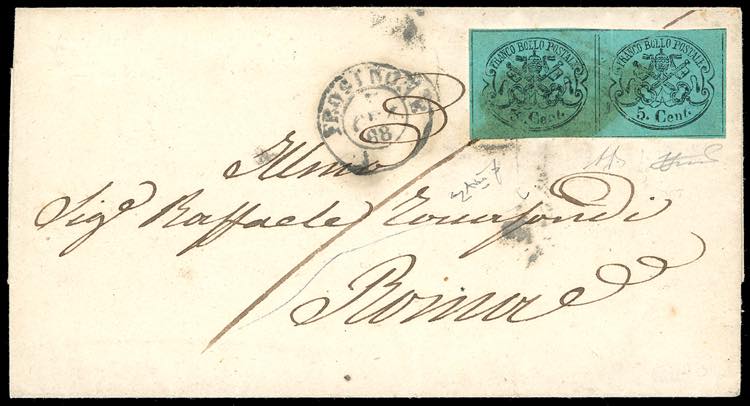 FRANCO BOLLO POSTALE
5. Cent.
FRANCO BOLLO POSTALE
5. Cent.
FROSINONE
68
Illmo
Sig.e Raffaele
Roma